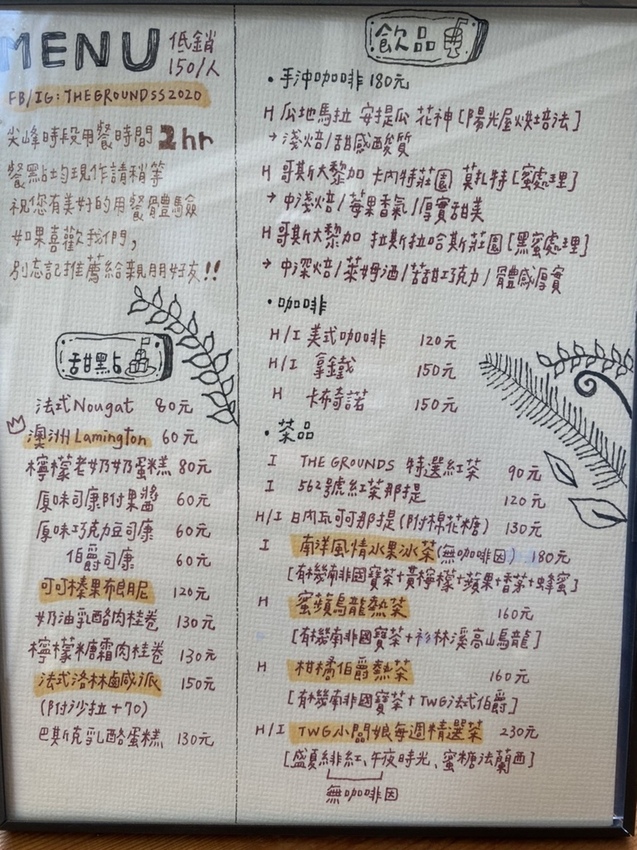 MENU 低銷
150/人
FB/IG: THEGROUNDSS2020
尖峰時段用餐時間 2hr
餐點均現作請稍等
祝您有美好的用餐體驗
如果喜歡我們,
別忘記推薦給親朋好友!!
甜點
法式Nougat 80元
澳洲Lamington 60元
檸檬老奶奶蛋糕 80元
原味司康附果醬 60元
原味巧克力豆司康 60元
伯爵司康 60元
可可榛果布朗尼 120元
奶油乳酪肉桂卷 130元
檸檬糖霜肉桂卷 130元
法式洛林鹹派 150元
(附沙拉+70)
巴斯克乳酪蛋糕 130元
飲品
•手沖咖啡 180元
H 瓜地馬拉 安提瓜 花神[陽光屋烘焙法]
→ 淺焙/甜感酒質
H 哥斯大黎加 卡內特莊園 莫扎特[蜜處理]
→ 中淺焙/莓果香氣/厚實甜美
H 哥斯大黎加 拉斯拉哈斯莊園[黑蜜處理]
→ 中深焙/萊姆酒/苦甜巧克力/體感厚實
•咖啡
H/I 美式咖啡 120元
H/I 拿鐵 150元
H 卡布奇諾 150元
•茶品
I THE GROUNDS 特選紅茶 90元
I 562號紅茶那提 120元
H/I 日內瓦可可那提(附棉花糖) 130元
I 南洋風情水果冰茶(無咖啡因) 180元
[有機南非國寶茶+黃檸檬+蘋果+香茅+蜂蜜]
H 蜜蘋烏龍熱茶 160元
[有機南非國寶茶+杉林溪高山烏龍]
H 柑橘伯爵熱茶 160元
[有機南非國寶茶+TWG法式伯爵]
H/I TWG小闆娘每週精選茶 230元
[盛夏緋紅、午夜時光、蜜糖法蘭西]
無咖啡因